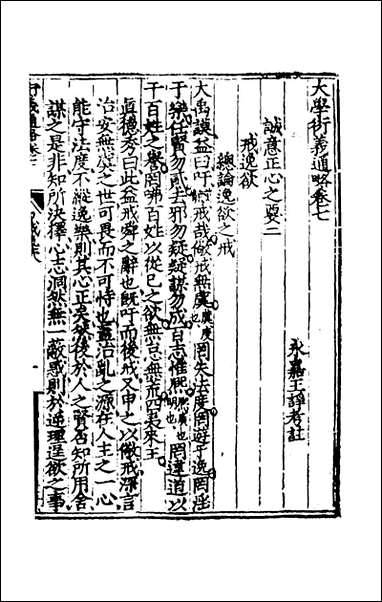 大學衍義通略卷七
永嘉王諍考註
誠意正心之要二
戒逸欲
總論逸欲之戒
大禹謨益曰吁戒哉儆戒無虞虞度也罔失法度罔遊于逸罔淫
于樂任賢勿貳去邪勿疑疑謀勿成百志惟熙熙廣也明也罔違道以
干百姓之譽罔咈百姓以從己之欲無怠無荒四夷來王
真德秀曰此益戒舜之辭也旣吁而後戒又申之以儆戒深言
治安無虞之世可畏而不可恃也蓋治亂之源在人主之一心
能守法度不縱逸樂則其心正矣然後於人之賢否知所用舍
謀之是非知所決擇心志洞然無一蔽惑則於逆理逞欲之事